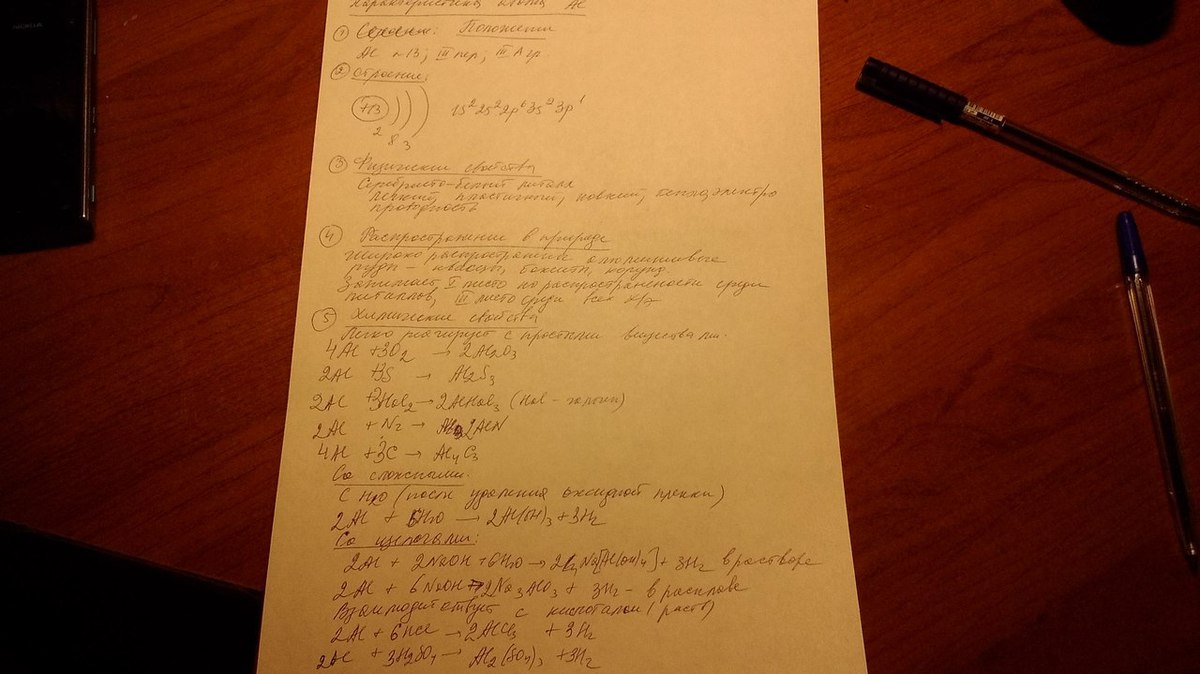 Характеристика атома Al
① Строение: Положение
Al №13; III пер, III А гр.
② Строение:
+13 ) ) )
2 8 3
1s² 2s² 2p⁶ 3s² 3p¹
③ Физические свойства
Серебристо-белый металл
Легкий, пластичный, ковкий, теплоэлектро
проводность
④ Распространение в природе
Широко распространены алюминиевые
руды – квасцы, бокситы, корунд.
Занимает I место по распространености среди
металлов, III место среди всех хэ
⑤ Химические свойства
Легко реагирует с простыми веществами.
4Al + 3O₂ → 2Al₂O₃
2Al + 3S → Al₂S₃
2Al + 3Hal₂ → 2AlHal₃ (Hal – галоген)
2Al + N₂ → 2AlN
4Al + 3C → Al₄C₃
Со сложными.
С H₂O (после удаления оксидной пленки)
2Al + 6H₂O → 2Al(OH)₃ + 3H₂
Со щелочами:
2Al + 2NaOH + 6H₂O → 2Na[Al(OH)₄] + 3H₂ в растворе
2Al + 6NaOH → 2Na₃AlO₃ + 3H₂ – в расплаве
Взаимодействует с кислотами (раств)
2Al + 6HCl → 2AlCl₃ + 3H₂
2Al + 3H₂SO₄ → Al₂(SO₄)₃ + 3H₂